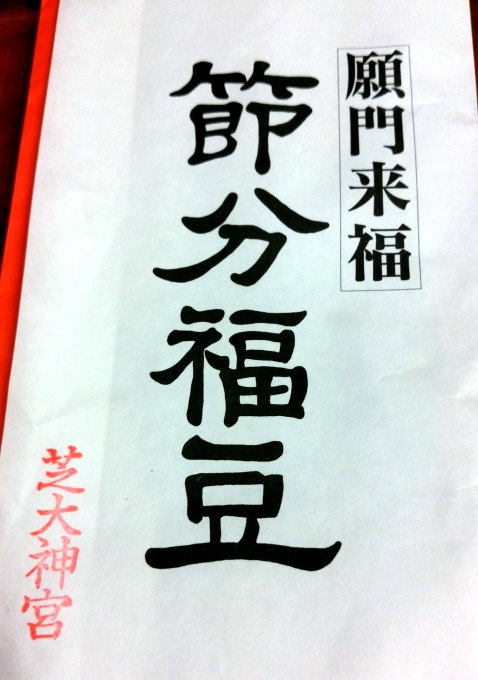 願門来福
節分福豆
芝大神宮